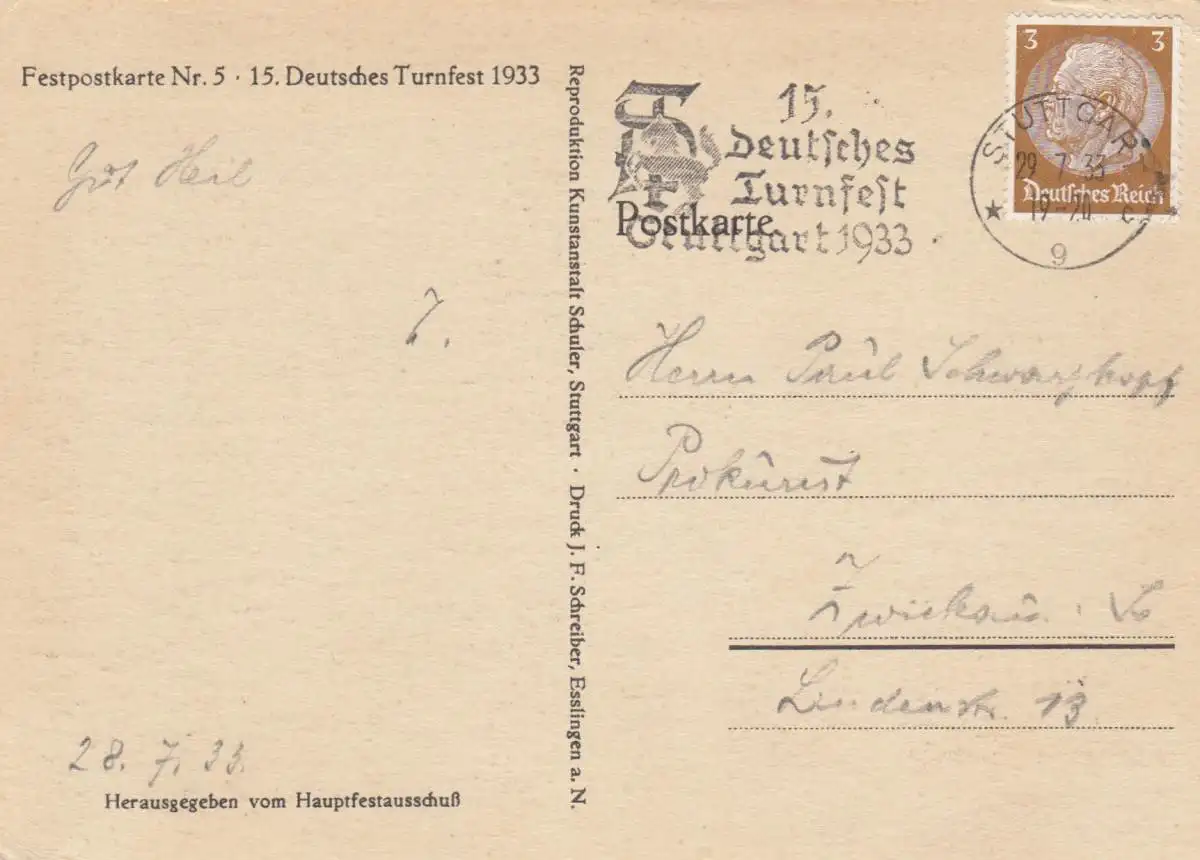 Festpostkarte Nr. 5 · 15. Deutsches Turnfest 1933
Gut Heil
7.
28. 7. 33.
Herausgegeben vom Hauptfestausschuß
Reproduktion Kunstanstalt Schuler, Stuttgart · Druck J. F. Schreiber, Esslingen a. N.
15.
Deutsches
Turnfest
Stuttgart 1933
Postkarte
3 3
Deutsches Reich
STUTTGART
29 7 33
19-20
9
Herrn Paul Schwarzkopf
Prokurist
Zwickau
Lindenstr. 13